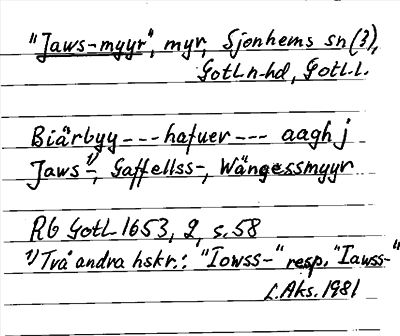 "Jaws-myyr", myr, Sjonhems sn(?),
Gotl.n-hd, Gotl.l.
Biärbyy --- hafuer --- aagh j
Jaws¹⁾-, Gaffellss-, Wängessmyyr
RG Gotl 1653, 2, s. 58
¹⁾Två andra hskr.: "Iowss-" resp. "Iawss-"
L.Aks. 1981